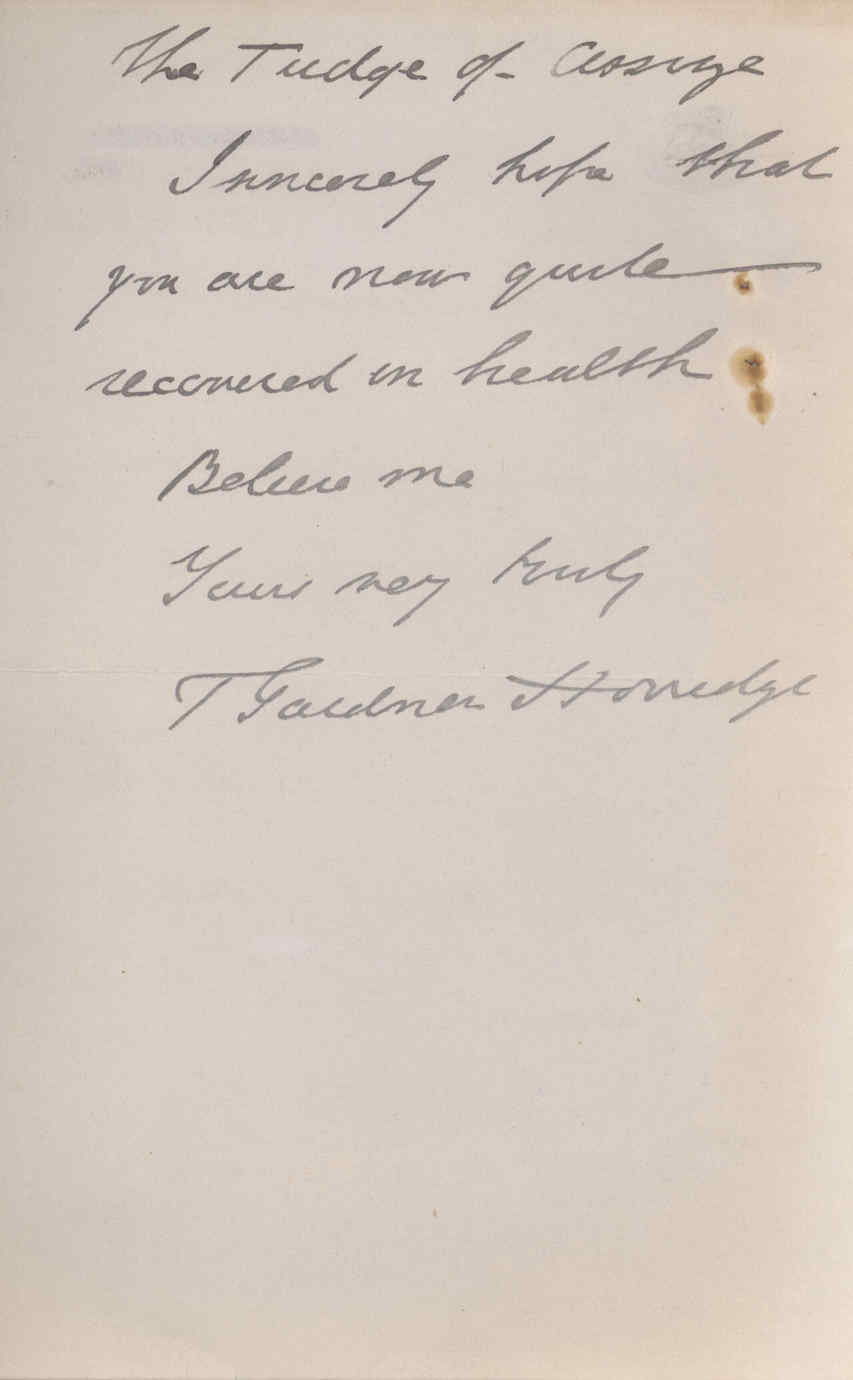 the Judge of Assize
I sincerely hope that
you are now quite
recovered in health
Believe me
Yours very truly
T Gardner Horridge